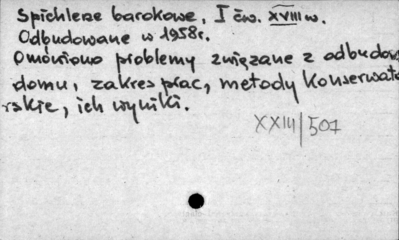 Spichlerze barokowe, I ćw. XVIII w.
Odbudowane w 1958r.
Omówiono problemy związane z odbudową
domu, zakres prac, metody konserwato
rskie, ich wyniki.
XXIII/501